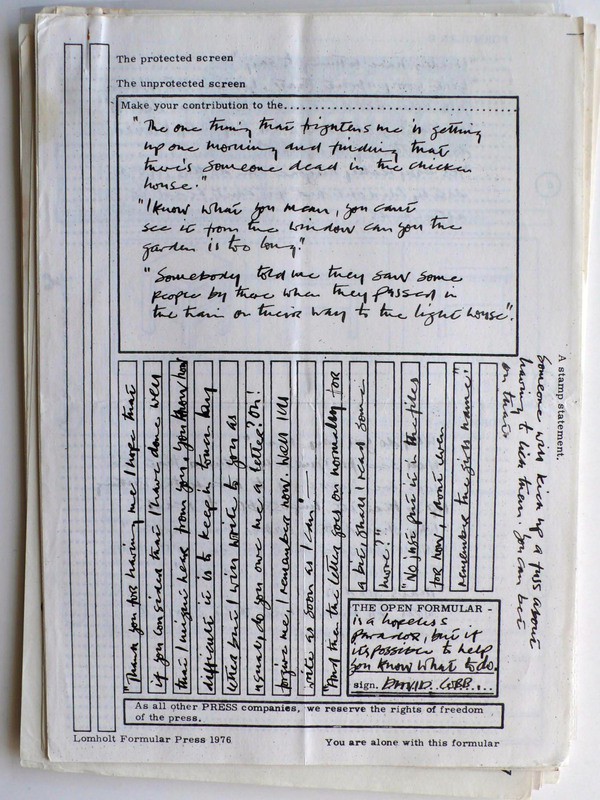 The protected screen
The unprotected screen
Make your contribution to the........................................
"The one thing that frightens me is getting
up one morning and finding that
there's someone dead in the chicken
house."
"I know what you mean, you can't
see it from the window can you the
garden is too long."
"Somebody told me they saw some
people by there when they passed in
the train on their way to the light house".
"Thank you for having me I hope that
if you consider that I have done well
that I might hear from you. You know how
difficult it is to keep in touch by
letter but I will write to you as
usual, do you owe me a letter? Oh!
forgive me, I remember now. Well I'll
write as soon as I can". —
"And then the letter goes on normally for
a bit, shall I read some
more?"
"No just put it in the files
for now, I dont even
remember the girls name".
A stamp statement.
Someone will kick up a fuss about
having to lick them. You can bet
on that.
THE OPEN FORMULAR -
is a hopeless
paradox, but if
its possible to help
you know what to do.
sign. DAVID COBB....
As all other PRESS companies, we reserve the rights of freedom
of the press.
Lomholt Formular Press 1976
You are alone with this formular